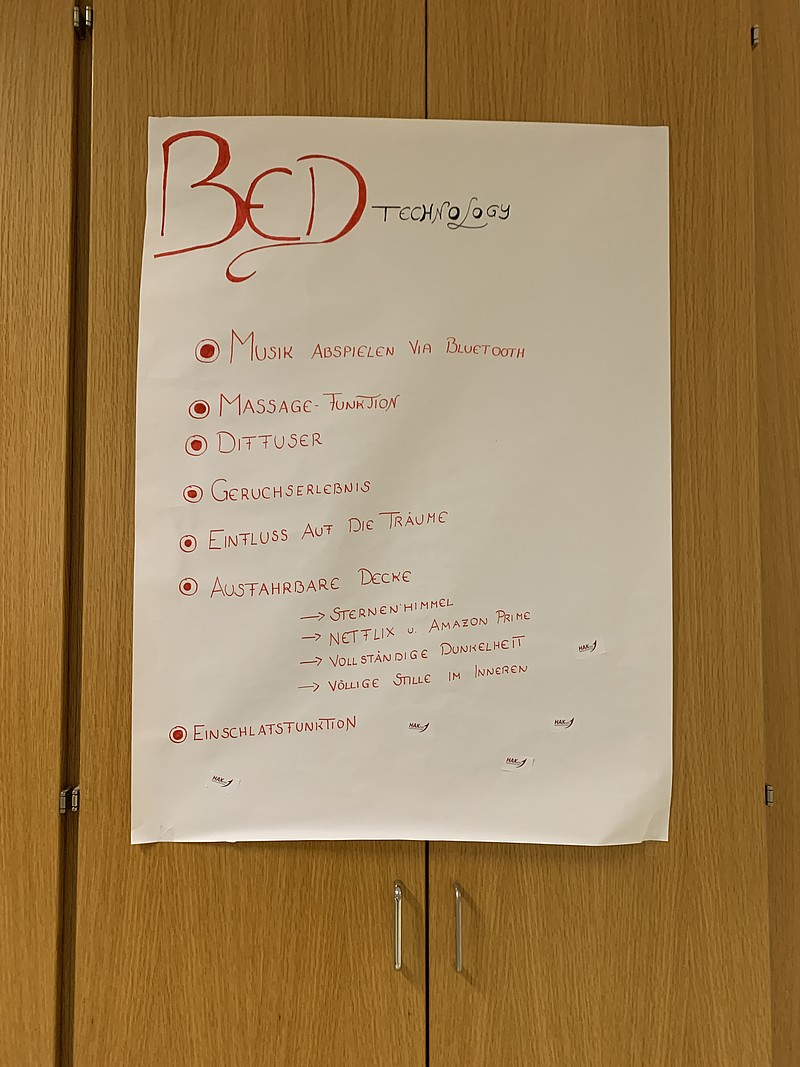 BED TECHNOLOGY
MUSIK ABSPIELEN VIA BLUETOOTH
MASSAGE-FUNKTION
DIFFUSER
GERUCHSERLEBNIS
EINFLUSS AUF DIE TRÄUME
AUSFAHRBARE DECKE
→ STERNENHIMMEL
→ NETFLIX U. AMAZON PRIME
→ VOLLSTÄNDIGE DUNKELHEIT
→ VÖLLIGE STILLE IM INNEREN
EINSCHLAFSFUNKTION
HAK
HAK
HAK
HAK
HAK